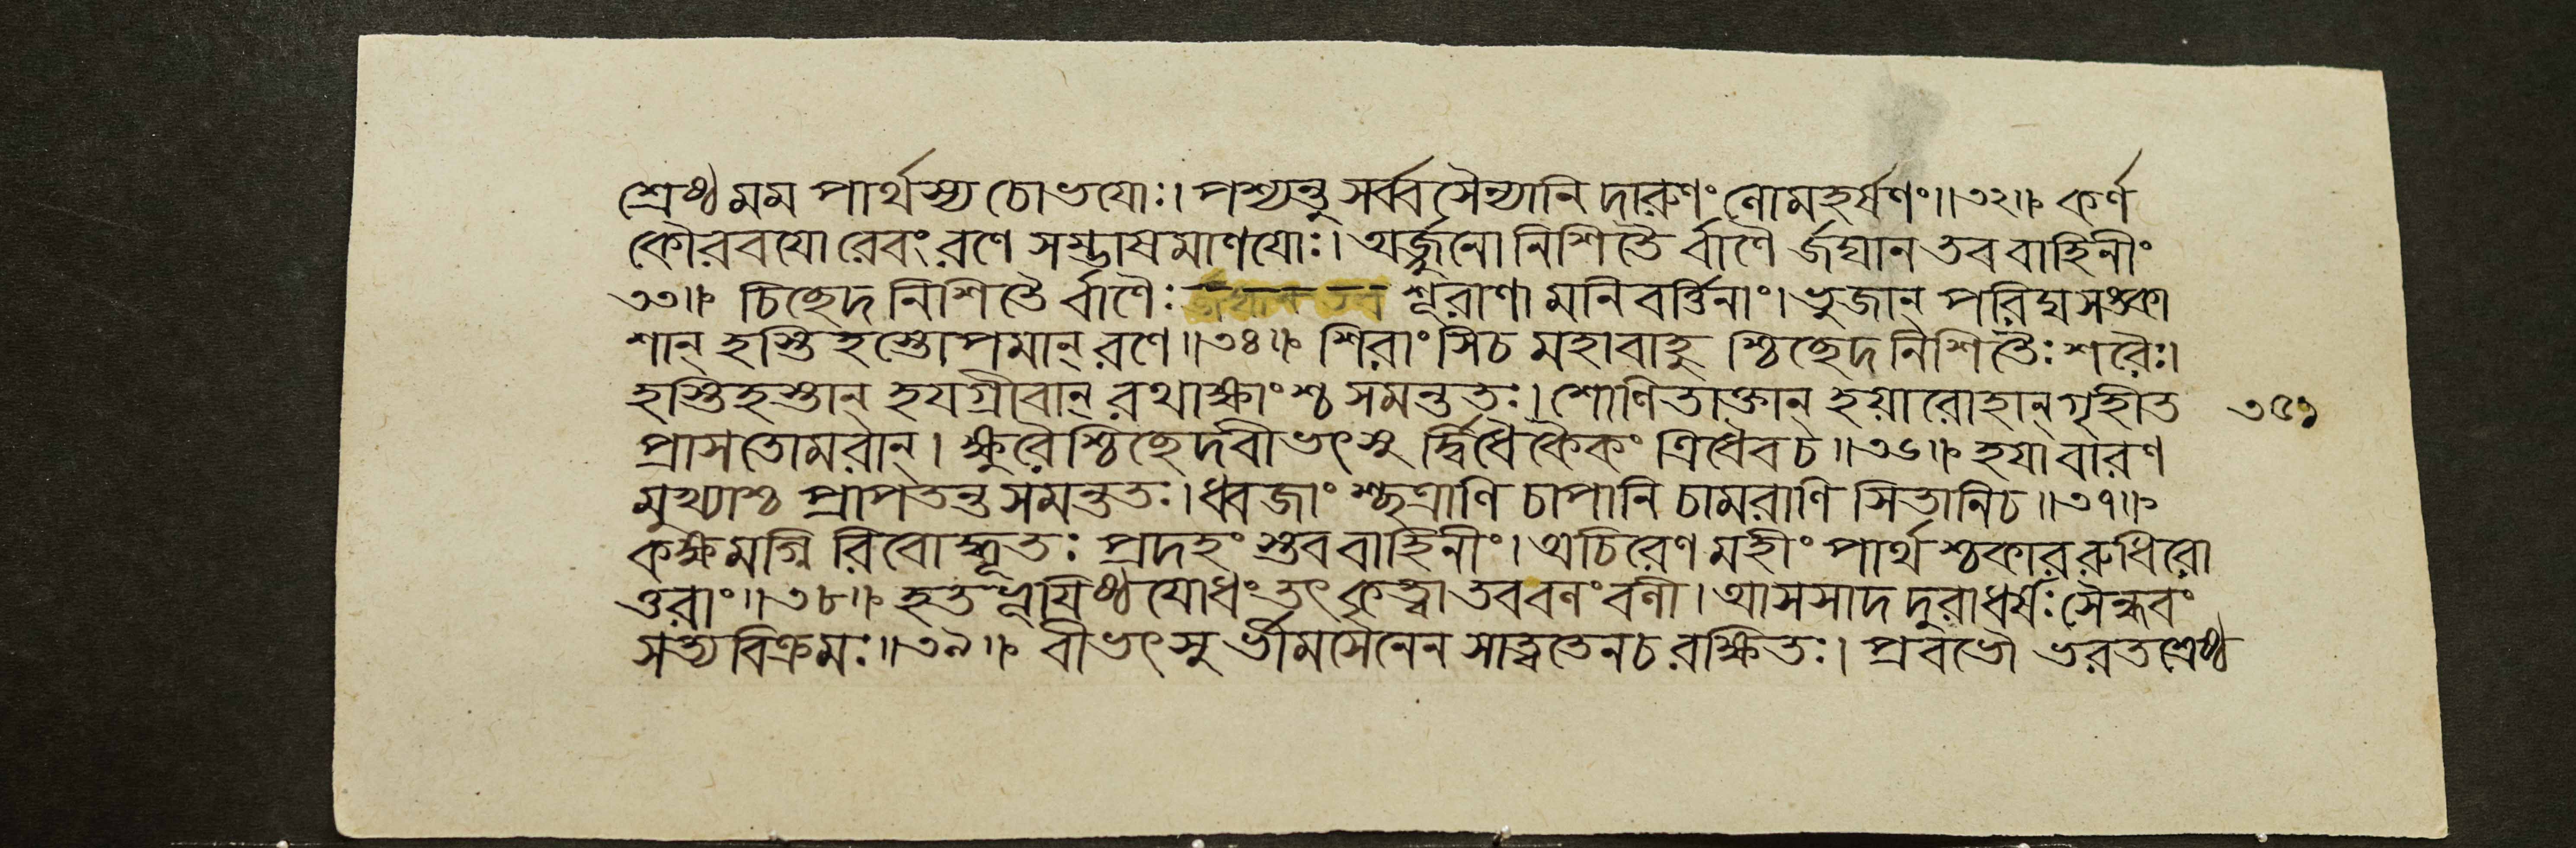 শ্রেষ্ঠ মম পার্থস্য চোভযোঃ। পশ্যন্তু সর্ব্বসৈন্যানি দারুণং লোমহর্ষণং॥৩২॥ কর্ণ
কৌরবযো রেবং রণে সম্ভাষমাণযোঃ। অর্জ্জুনো নিশিতৈ র্বাণৈ র্জঘান তব বাহিনীং
৩৩॥ চিচ্ছেদ নিশিতৈ র্বাণৈঃ শূরাণা মনিবর্ত্তিনাং। ভুজান্ পরিঘ সঙ্কা
শান্ হস্তিহস্তোপমান্ রণে॥৩৪॥ শিরাংসিচ মহাবাহু শ্চিচ্ছেদ নিশিতৈঃ শরৈঃ।
হস্তিহস্তান্ হযগ্রীবান্ রথাক্ষাংশ্চ সমন্ততঃ। শোণিতাক্তান্ হয়ারোহান্ গৃহীত ৩৫১
প্রাসতোমরান্। ক্ষুরৈশ্চিচ্ছেদ বীভৎসু র্দ্বিধৈকৈকং ত্রিধৈবচ॥৩৬॥ হযা বারণ
মুখ্যাশ্চ প্রাপতন্ত সমন্ততঃ। ধ্বজাংশ্ছত্রাণি চাপানি চামরাণি সিতানিচ॥৩৭॥
কক্ষমগ্নি রিবোদ্ভূতঃ প্রদহং স্তব বাহিনীং। অচিরেণ মহীং পার্থ শ্চকার রুধিরো
ত্তরাং॥৩৮॥ হত ভূযিষ্ঠ যোধং তৎ কৃত্বা তব বলং বলী। আসসাদ দুরাধর্ষঃ সৈন্ধবং
সত্য বিক্রমঃ॥৩৯॥ বীভৎসু র্ভীমসেনেন সাত্বতেনচ রক্ষিতঃ। প্রবভৌ ভরতশ্রেষ্ঠ